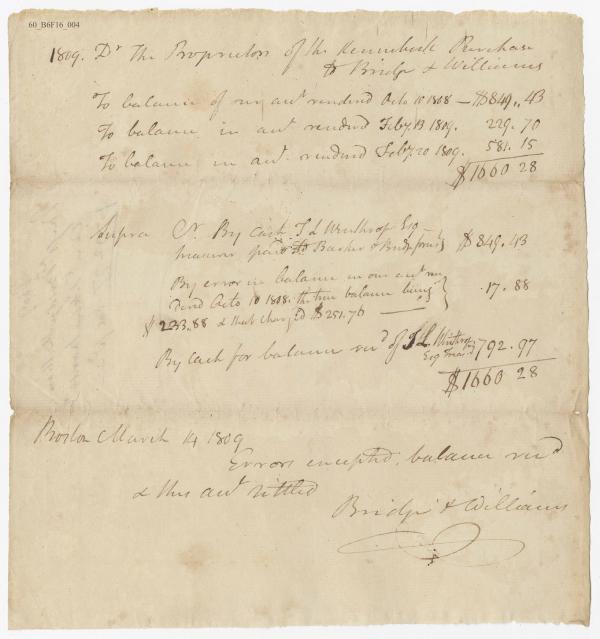 60_B6F16_004
1809. Dr The Proprietors of the Kennebeck Purchase
to Bridge & Williams
To balance of our acct rendered Octo 10 1808 — $849.. 43
To balance in acct rendered Feby. 13 1809. 229. 70
To balance in acct. rendered Feby. 20 1809. 581. 15
$1660 28
Supra Cr. By Cash T L Winthrop Esq
treasurer paid to Barker & Bridge $849. 43
By error in balance in our acct ren
dered Octo 10 1808. the true balance being
$233.88 & that charged $251.76 — .17. 88
By Cash for balance recd of T L Winthrop
Esq Trear 792. 97
$1660 28
Boston March 14 1809
Errors excepted, balance recd
& this acct settled
Bridge & Williams